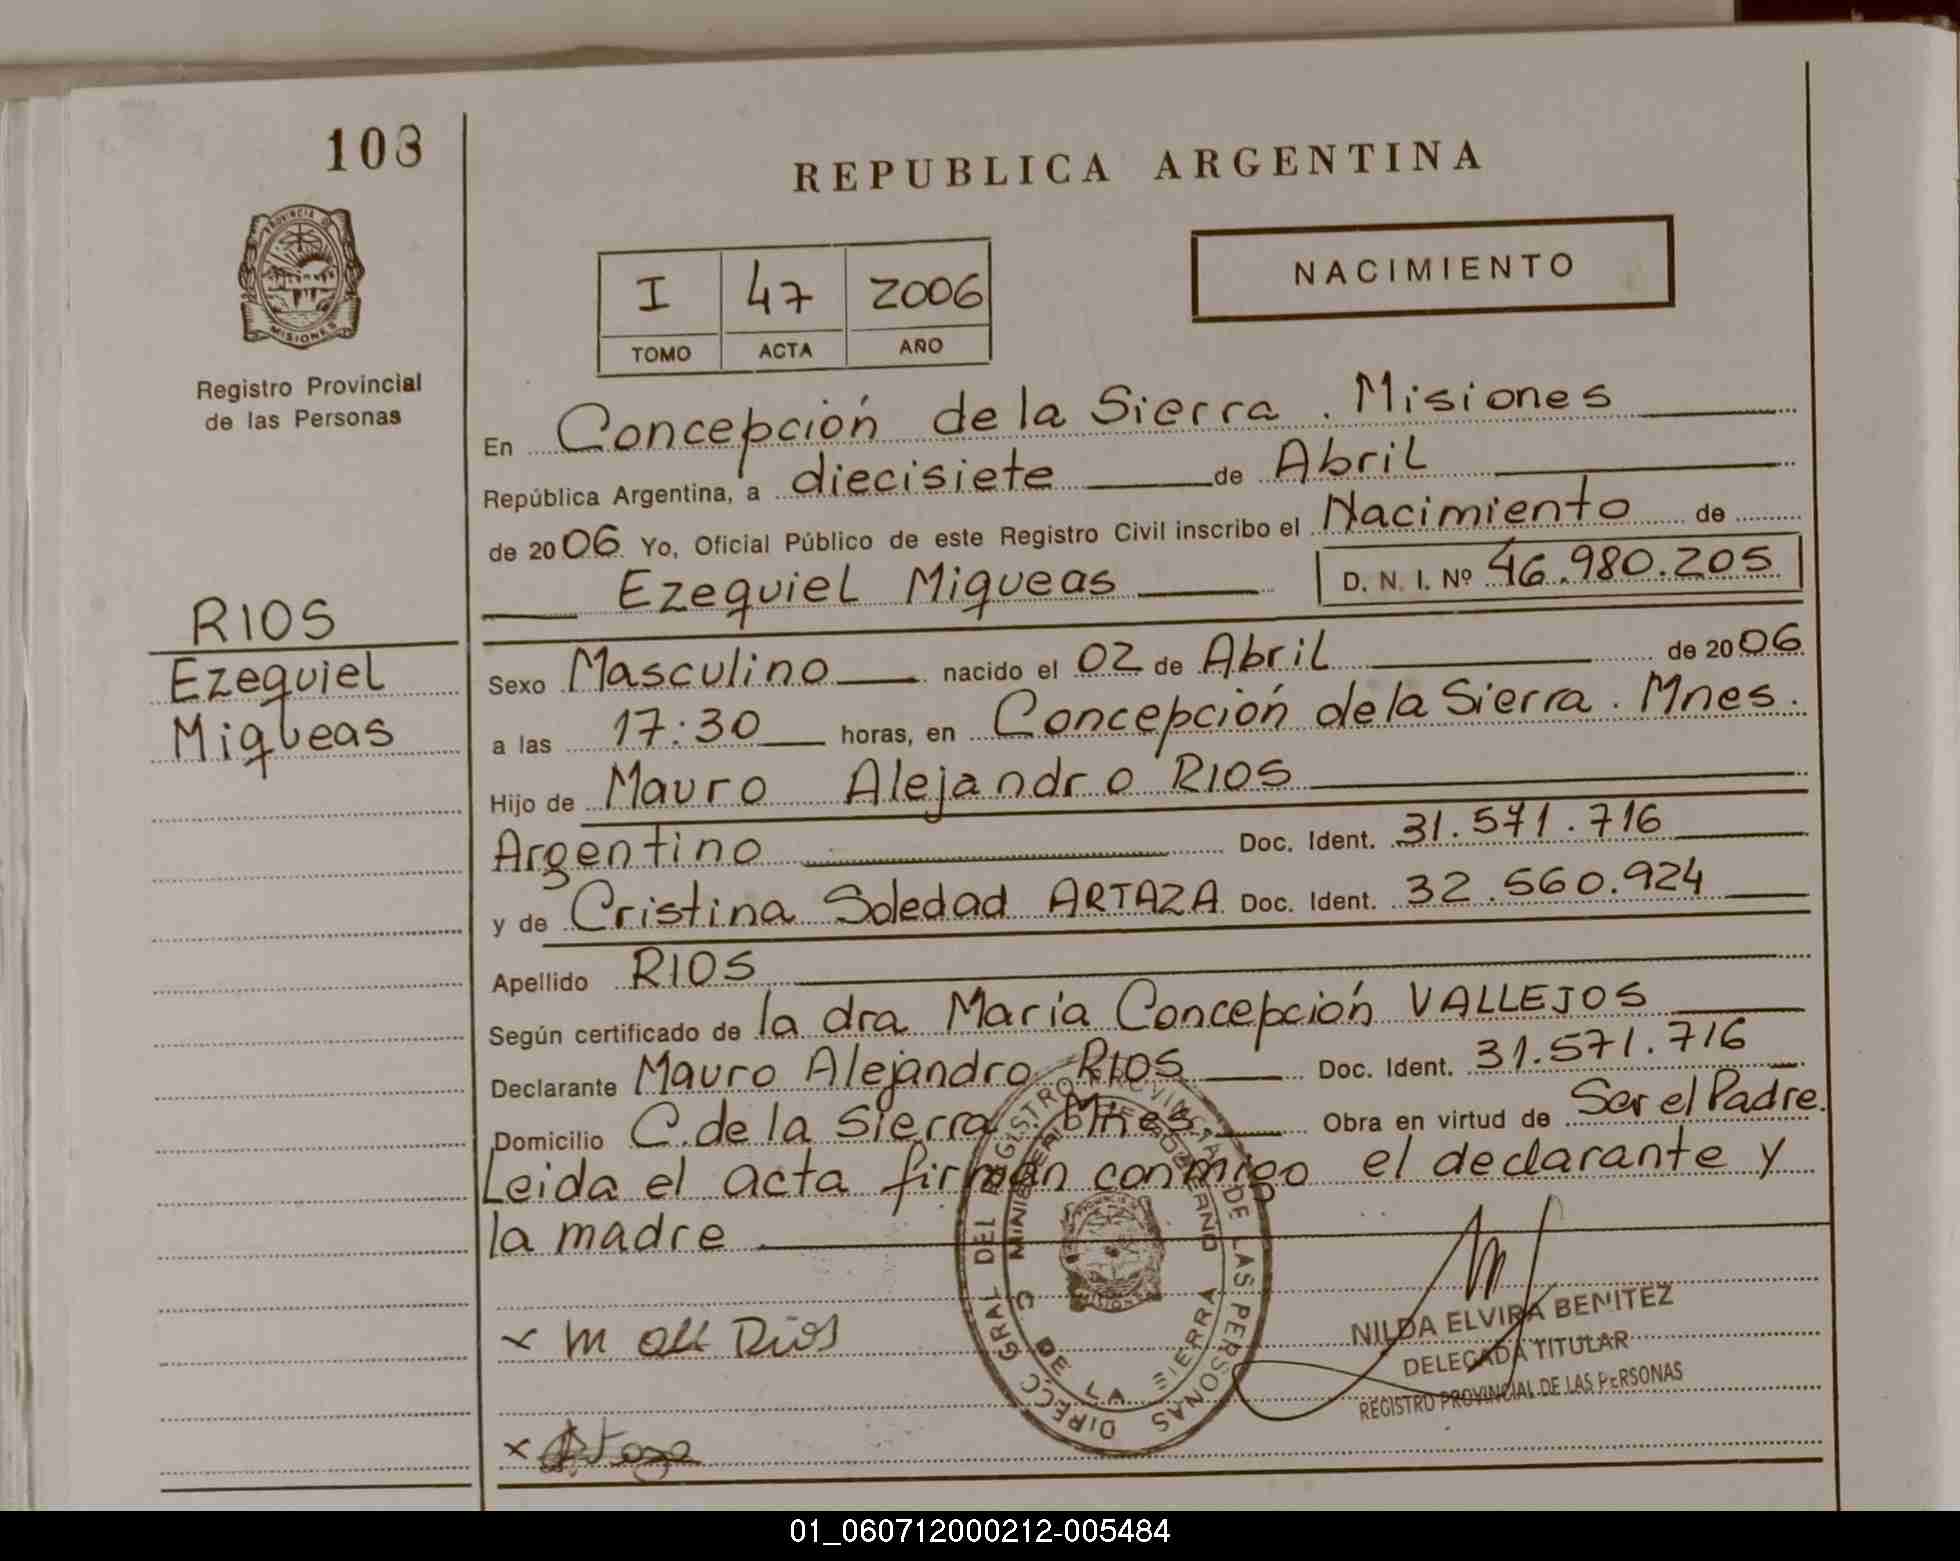 103
REPUBLICA ARGENTINA
PROVINCIA DE
MISIONES
Registro Provincial
de las Personas
I 47 2006
TOMO ACTA AÑO
NACIMIENTO
En Concepción de la Sierra . Misiones
República Argentina, a diecisiete de Abril
de 2006 Yo, Oficial Público de este Registro Civil inscribo el Nacimiento de
Ezequiel Miqueas D. N. I. Nº 46.980.205
RIOS
Ezequiel
Miqueas
Sexo Masculino nacido el 02 de Abril de 2006
a las 17:30 horas, en Concepción de la Sierra . Mnes.
Hijo de Mauro Alejandro RIOS
Argentino Doc. Ident. 31.571.716
y de Cristina Soledad ARTAZA Doc. Ident. 32.560.924
Apellido RIOS
Según certificado de la dra María Concepción VALLEJOS
Declarante Mauro Alejandro RIOS Doc. Ident. 31.571.716
Domicilio C. de la Sierra Mnes. Obra en virtud de Ser el Padre.
Leida el acta firman conmigo el declarante y
la madre
DIRECC GRAL DEL REGISTRO PROVINCIAL DE LAS PERSONAS
MINISTERIO DE GOBIERNO
C DE LA SIERRA
x M Rios
x Artaza
NILDA ELVIRA BENITEZ
DELEGADA TITULAR
REGISTRO PROVINCIAL DE LAS PERSONAS
01_060712000212-005484